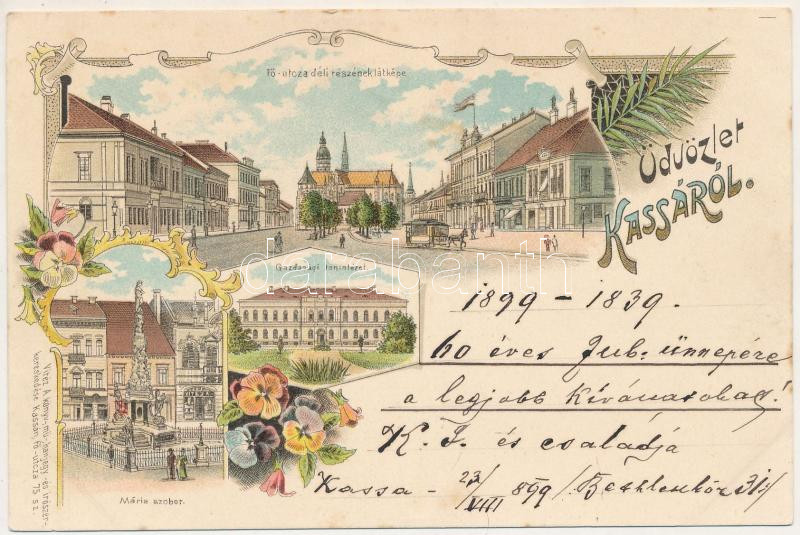 Fő-utcza déli részének látképe
Üdvözlet
KASSÁRÓL.
Gazdasági tanintézet.
Mária szobor.
Vitéz A. könyv-, mű-
kereskedése Kassán, fő-utcza 75. sz.
darabanth
1899 - 1839.
60 éves Jub: ünnepére
a legjobb Kívánatokat!
K. J. és családja
Kassa - 23/VIII 899/ Bethlenkör 31/